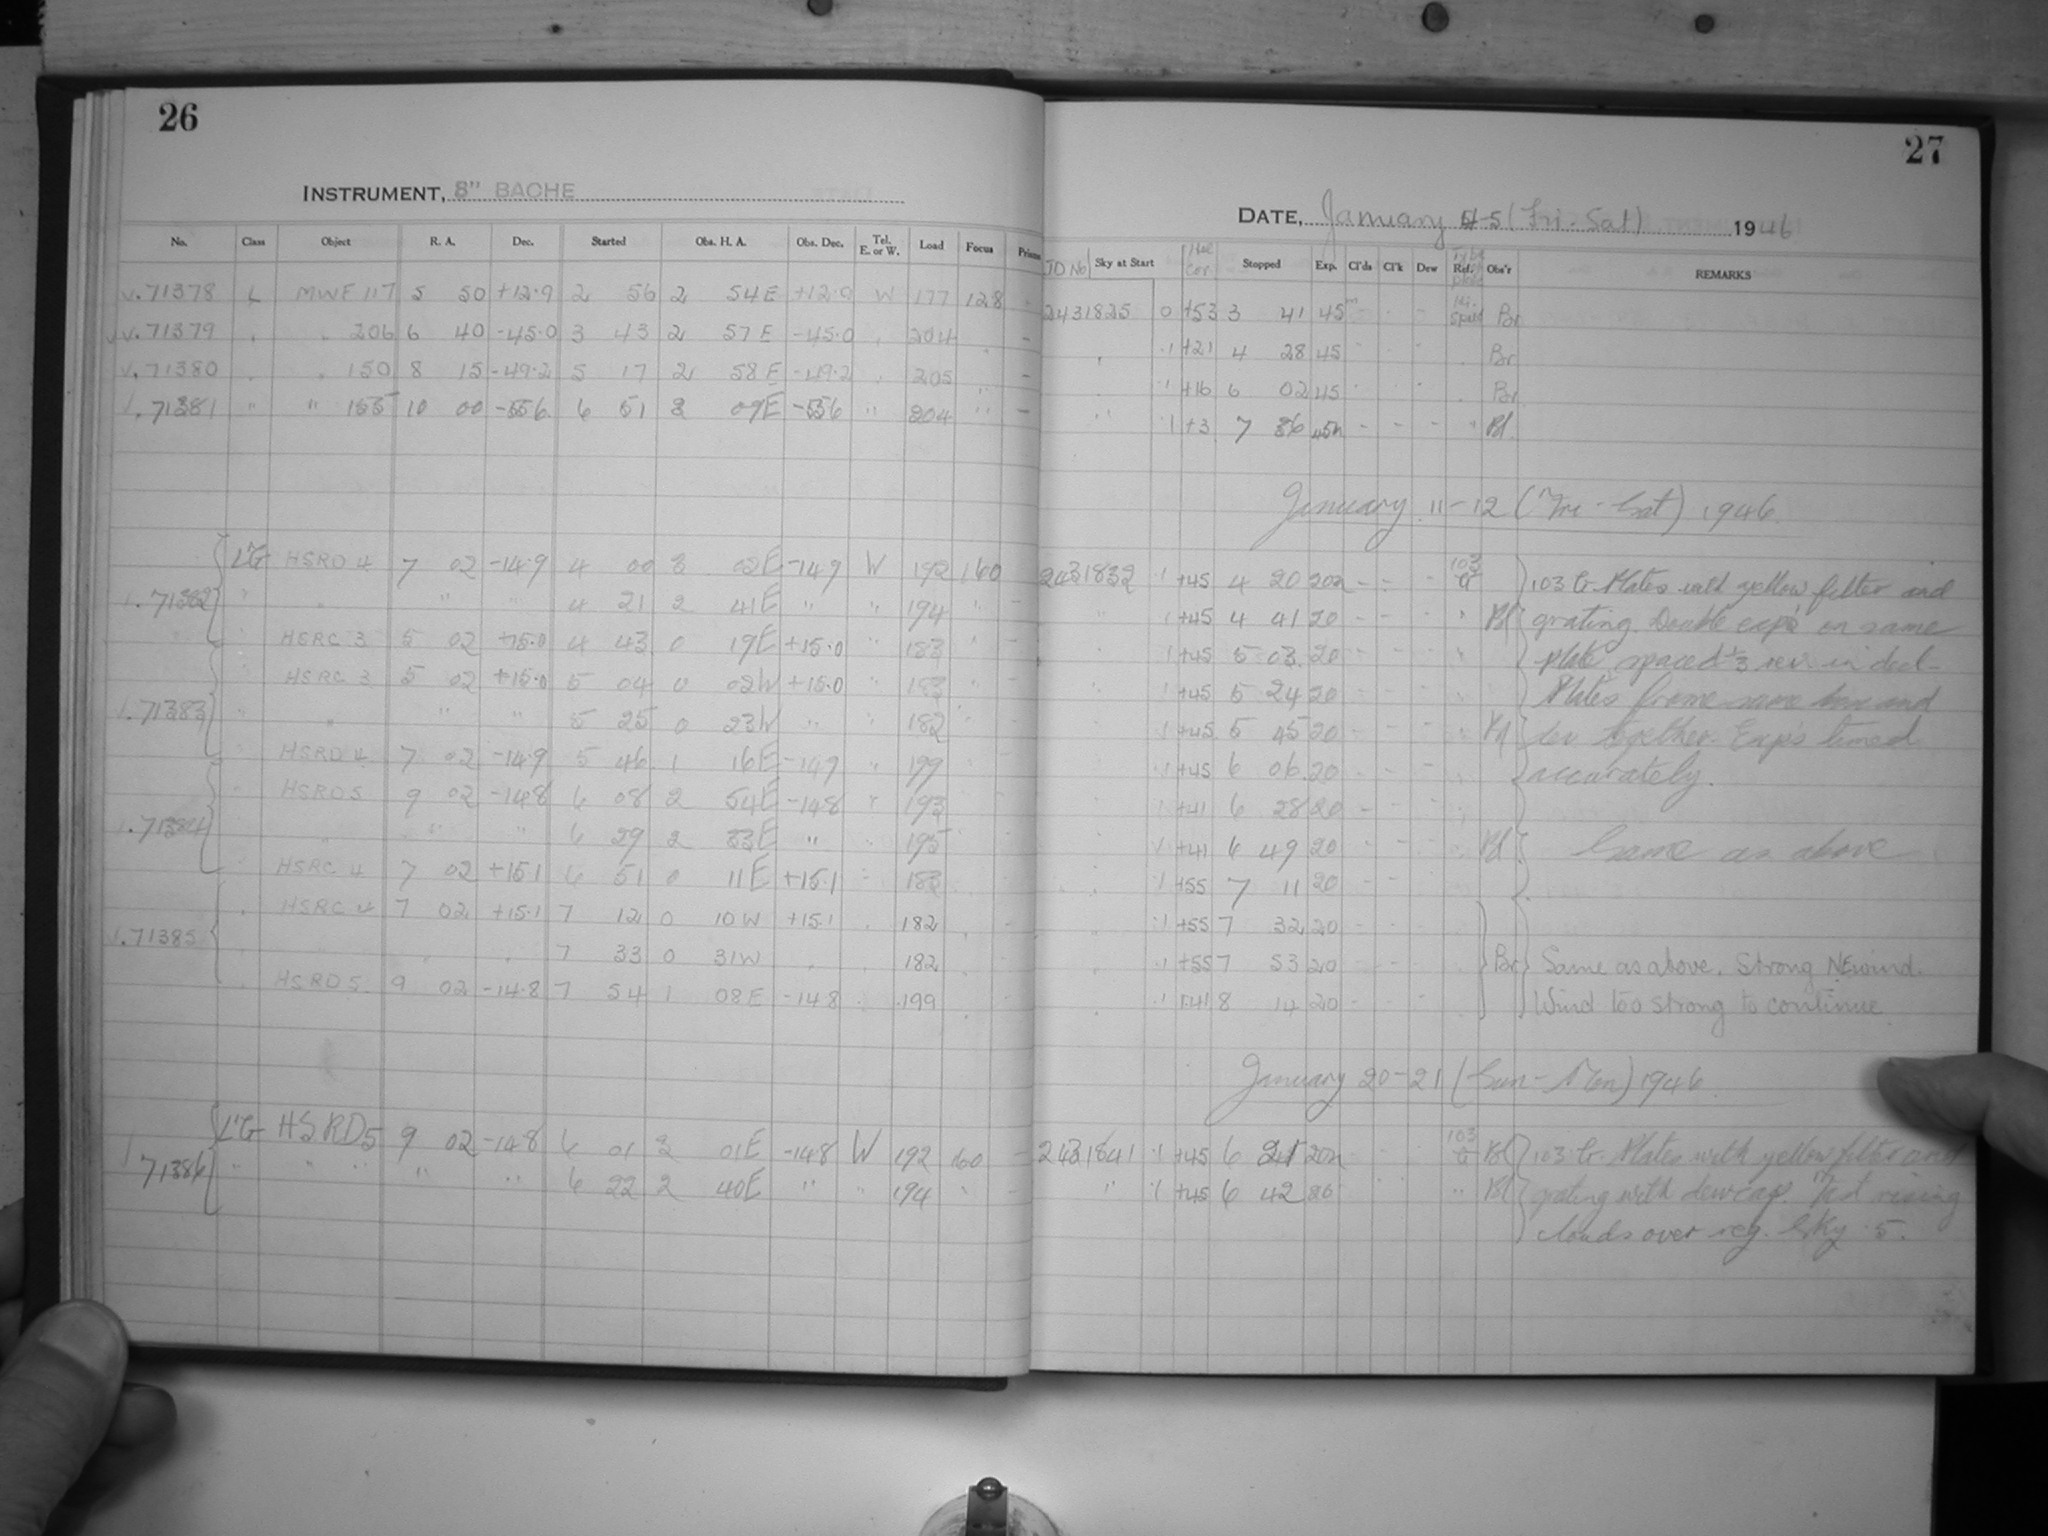 26
INSTRUMENT, 8" BACHE
No. Class Object R. A. Dec. Started Obs. H. A. Obs. Dec. Tel. E. or W. Load Focus Prisms
71378 L MWF 117 5 50 +12.9 2 56 2 54 E +12.9 W 177 128 -
71379 " " 206 6 40 -45.0 3 43 2 57 E -45.0 " 204 " -
71380 " " 150 8 15 -49.2 5 17 2 58 E -49.2 " 205 " -
71381 " " 155 10 00 -55.6 6 51 3 09 E -55.6 " 204 " -
HSRD 4 7 02 -14.9 4 00 3 02 E -14.9 W 192 160
71382 " " " " 4 21 2 41 E " " 194 " -
" HSRC 3 5 02 +15.0 4 43 0 19 E +15.0 " 183 " -
HSRC 3 5 02 +15.0 5 04 0 02 W +15.0 " 183 " -
71383 " " " " 5 25 0 23 W " 182
" HSRD 4 7 02 -14.9 5 46 1 16 E -14.9 " 199
HSRD 5 9 02 -14.8 6 08 2 54 E -14.8 " 193
71384 " " " 6 29 2 33 E " 195
HSRC 4 7 02 +15.1 6 51 0 11 E +15.1 183
HSRC 4 7 02 +15.1 7 12 0 10 W +15.1 182
71385 " " " 7 33 0 31 W " 182
HSRD 5 9 02 -14.8 7 54 1 08 E -14.8 199
HSRD 5 9 02 -14.8 6 01 3 01 E -14.8 W 192 160 -
71386 " " " " " 6 22 2 40 E " " 194 " -
27
DATE, January 4-5 (Fri.-Sat) 1946
JD No Sky at Start Hel cor. Stopped Exp. Cl'ds Cl'k Dew Type Ref. Plate Obs'r REMARKS
2431825 0 +53 3 41 45m - - - Hi. Speed Br
" .1 +21 4 28 45 - - - " Br
" .1 +16 6 02 45 - - - " Br
" .1 +3 7 36 45m - - - "
January 11-12 (Fri-Sat) 1946
2431832 .1 +45 4 20 20m - - 103 G 103 G. Plates with yellow filter and
" .1 +45 4 41 20 - - " grating. Double exps on same
.1 +45 5 03 20 - - " plate spaced in decl-
.1 +45 5 24 20 - - " Plates from same box and
.1 +45 5 45 20 - - " dev together. Exps timed
.1 +45 6 06 20 - - " accurately.
.1 +41 6 28 20 - -
.1 +41 6 49 20 - - Same as above
.1 +55 7 11 20 - -
.1 +55 7 32 20 - -
.1 +55 7 53 20 - - Br Same as above. Strong NE wind.
.1 +41 8 14 20 - - Wind too strong to continue
January 20-21 (Sun-Mon) 1946
2431841 .1 +45 6 21 20m 103 G 103 G. Plates with yellow filter and
" .1 +45 6 42 20 " grating with dewcap. Fast rising
clouds over reg. Sky .5.